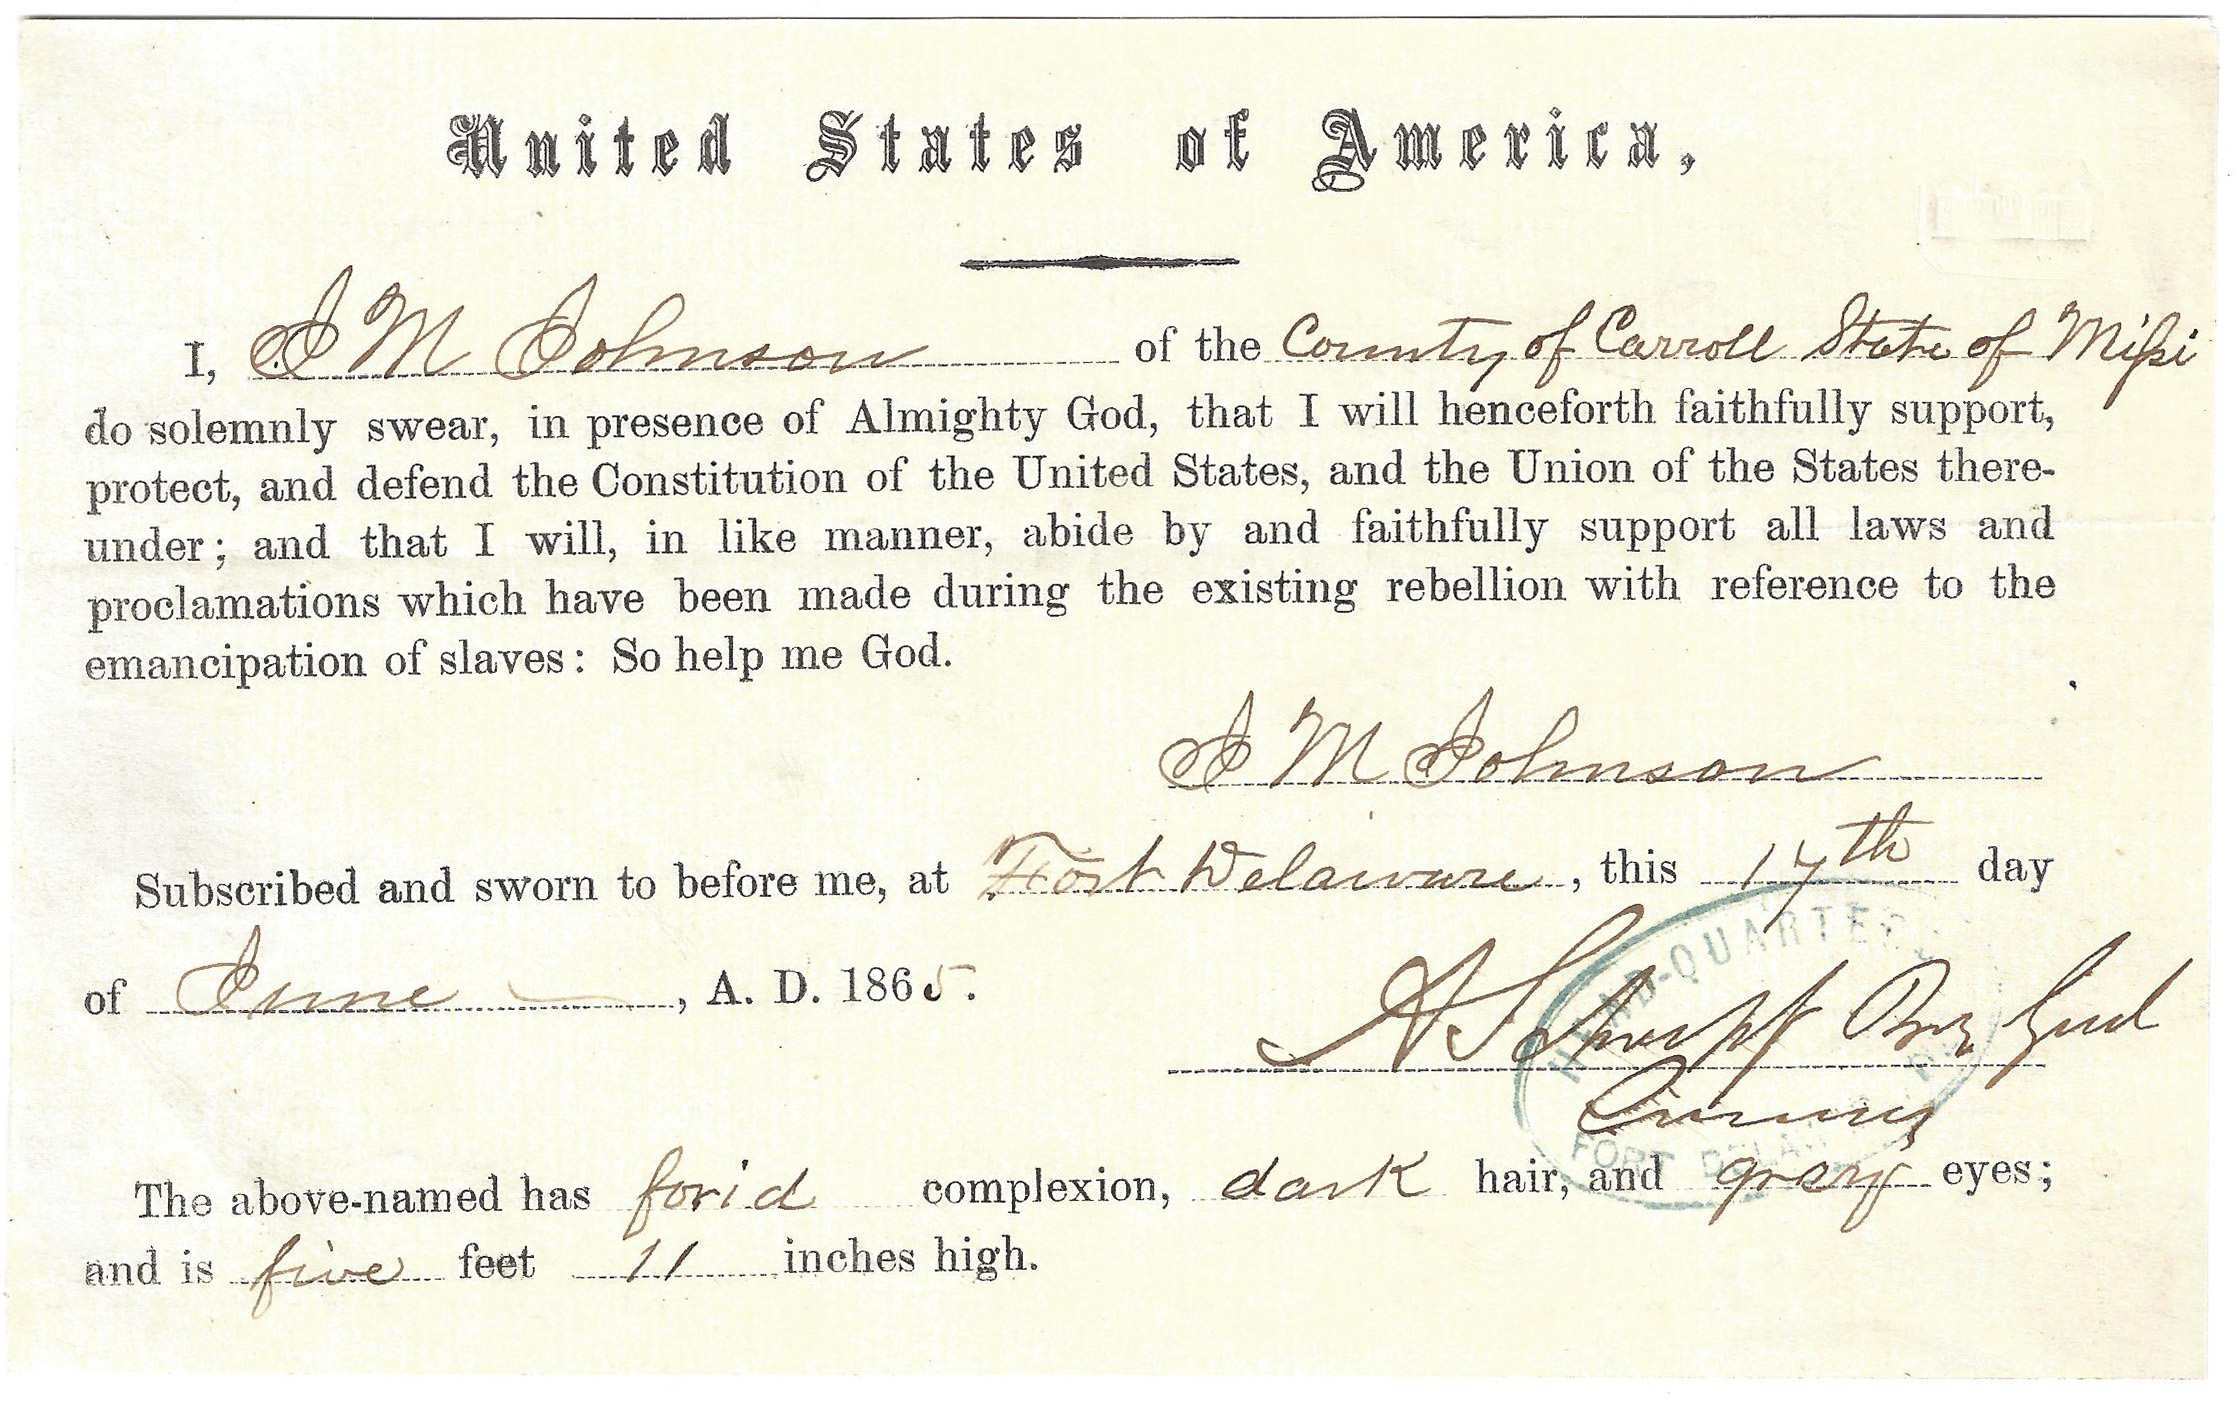 United States of America,
I, J M Johnson of the County of Carroll State of Missi
do solemnly swear, in presence of Almighty God, that I will henceforth faithfully support,
protect, and defend the Constitution of the United States, and the Union of the States there-
under; and that I will, in like manner, abide by and faithfully support all laws and
proclamations which have been made during the existing rebellion with reference to the
emancipation of slaves: So help me God.
J M Johnson
Subscribed and sworn to before me, at Fort Delaware, this 17th day
of June, A. D. 1865.
HEAD-QUARTERS
A Schoepf Brig Genl
FORT DELAWARE
The above-named has florid complexion, dark hair, and grey eyes;
and is five feet 11 inches high.